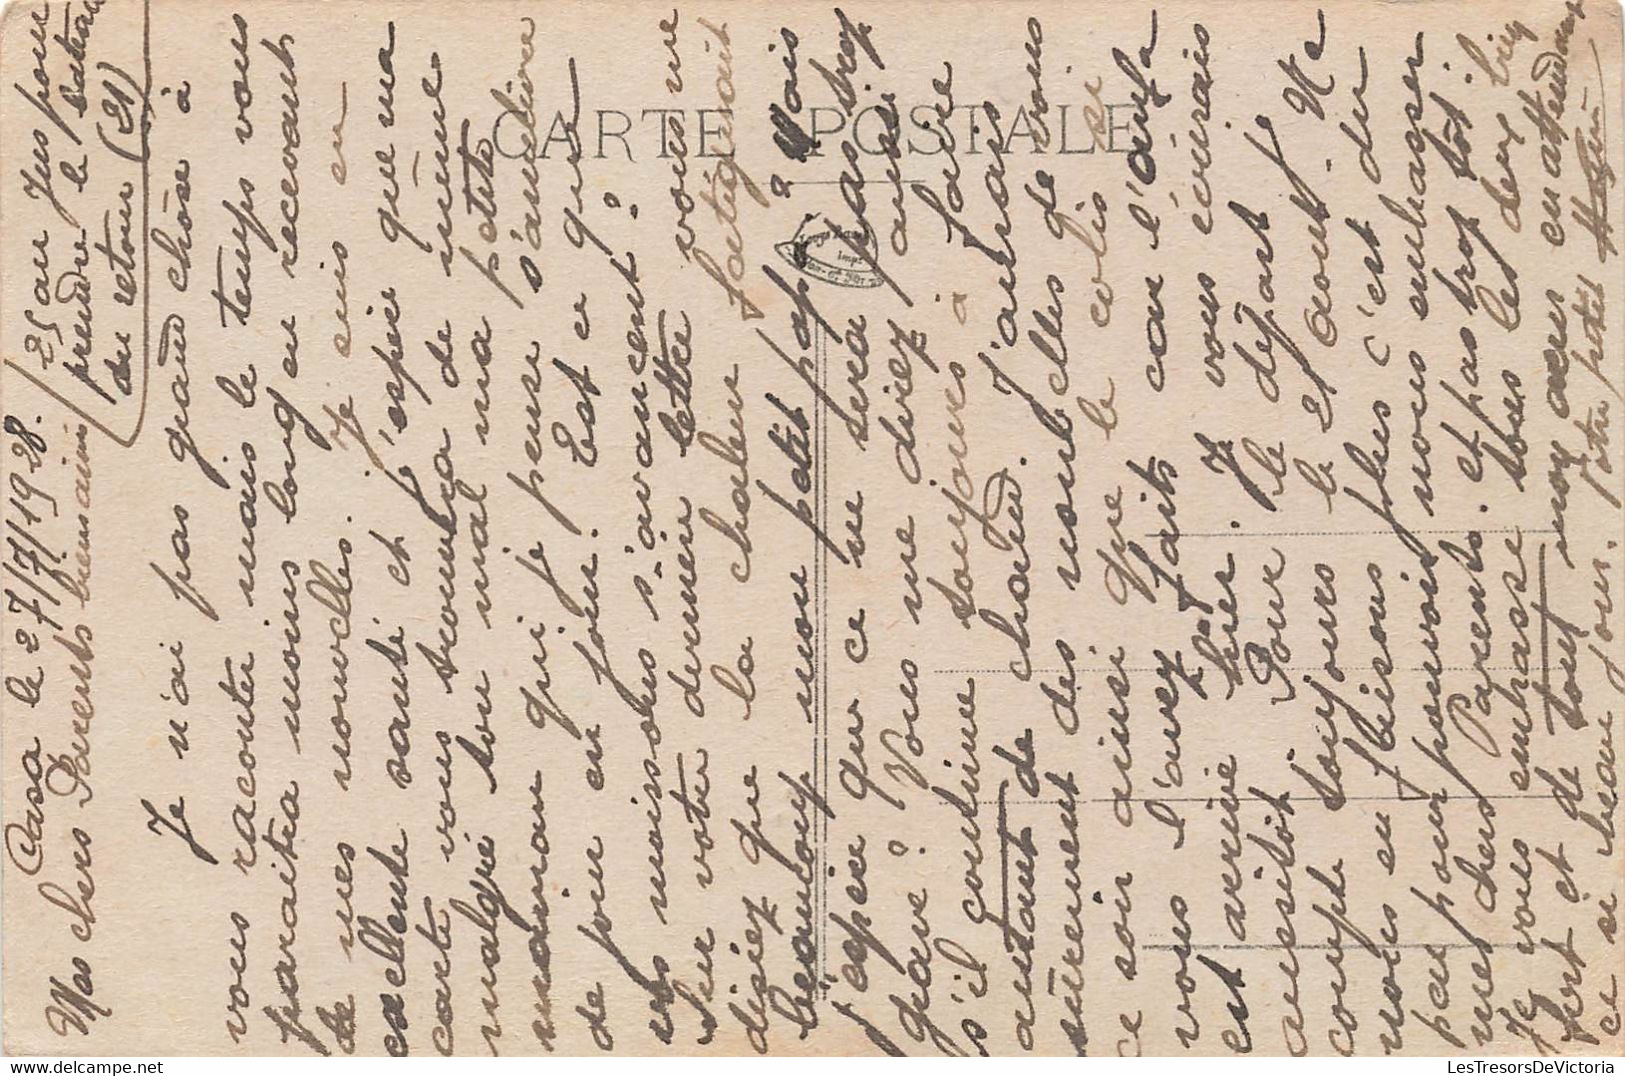 Casa le 27/7/1928.
Mes chers Parents bien aimés
25 au Jus pour
prendre le bateau
du retour (21)
Je n'ai pas grand chose à
vous raconter mais le temps vous
paraîtra moins long en recevant
de mes nouvelles. Je suis en
excellente santé et j'espère que ma
carte vous trouvera de même
malgré tou mal ma petite
maman qui je pense s'améliore
de jour en jour. Est ce que
les moissons s'avancent?
Sur votre dernière lettre vous me
disiez que la chaleur fatiguait
beaucoup mon petit pap? Mais
j'espère que ce ne sera pas trop
grave? Vous me direz aussi
s'il continue toujours à faire
autant de chaud. J'aurais
sûrement des nouvelles de vous
ce soir ainsi que le colis si
vous l'avez fait car l'
est arrivé hier. Je vous écrirais
aussitôt. Pour le départ je
compte toujours le 21 Août. Ne
nous en faisons plus c'est du
peu pour pouvoir nous embrasser
mes chers Parents. et pas trop tôt.
Je vous embrasse tous les deux bien
fort et de tout mon cœur en attendant
ce si beau jour. Votre petit
CARTE POSTALE
LesTresorsDeVictoria